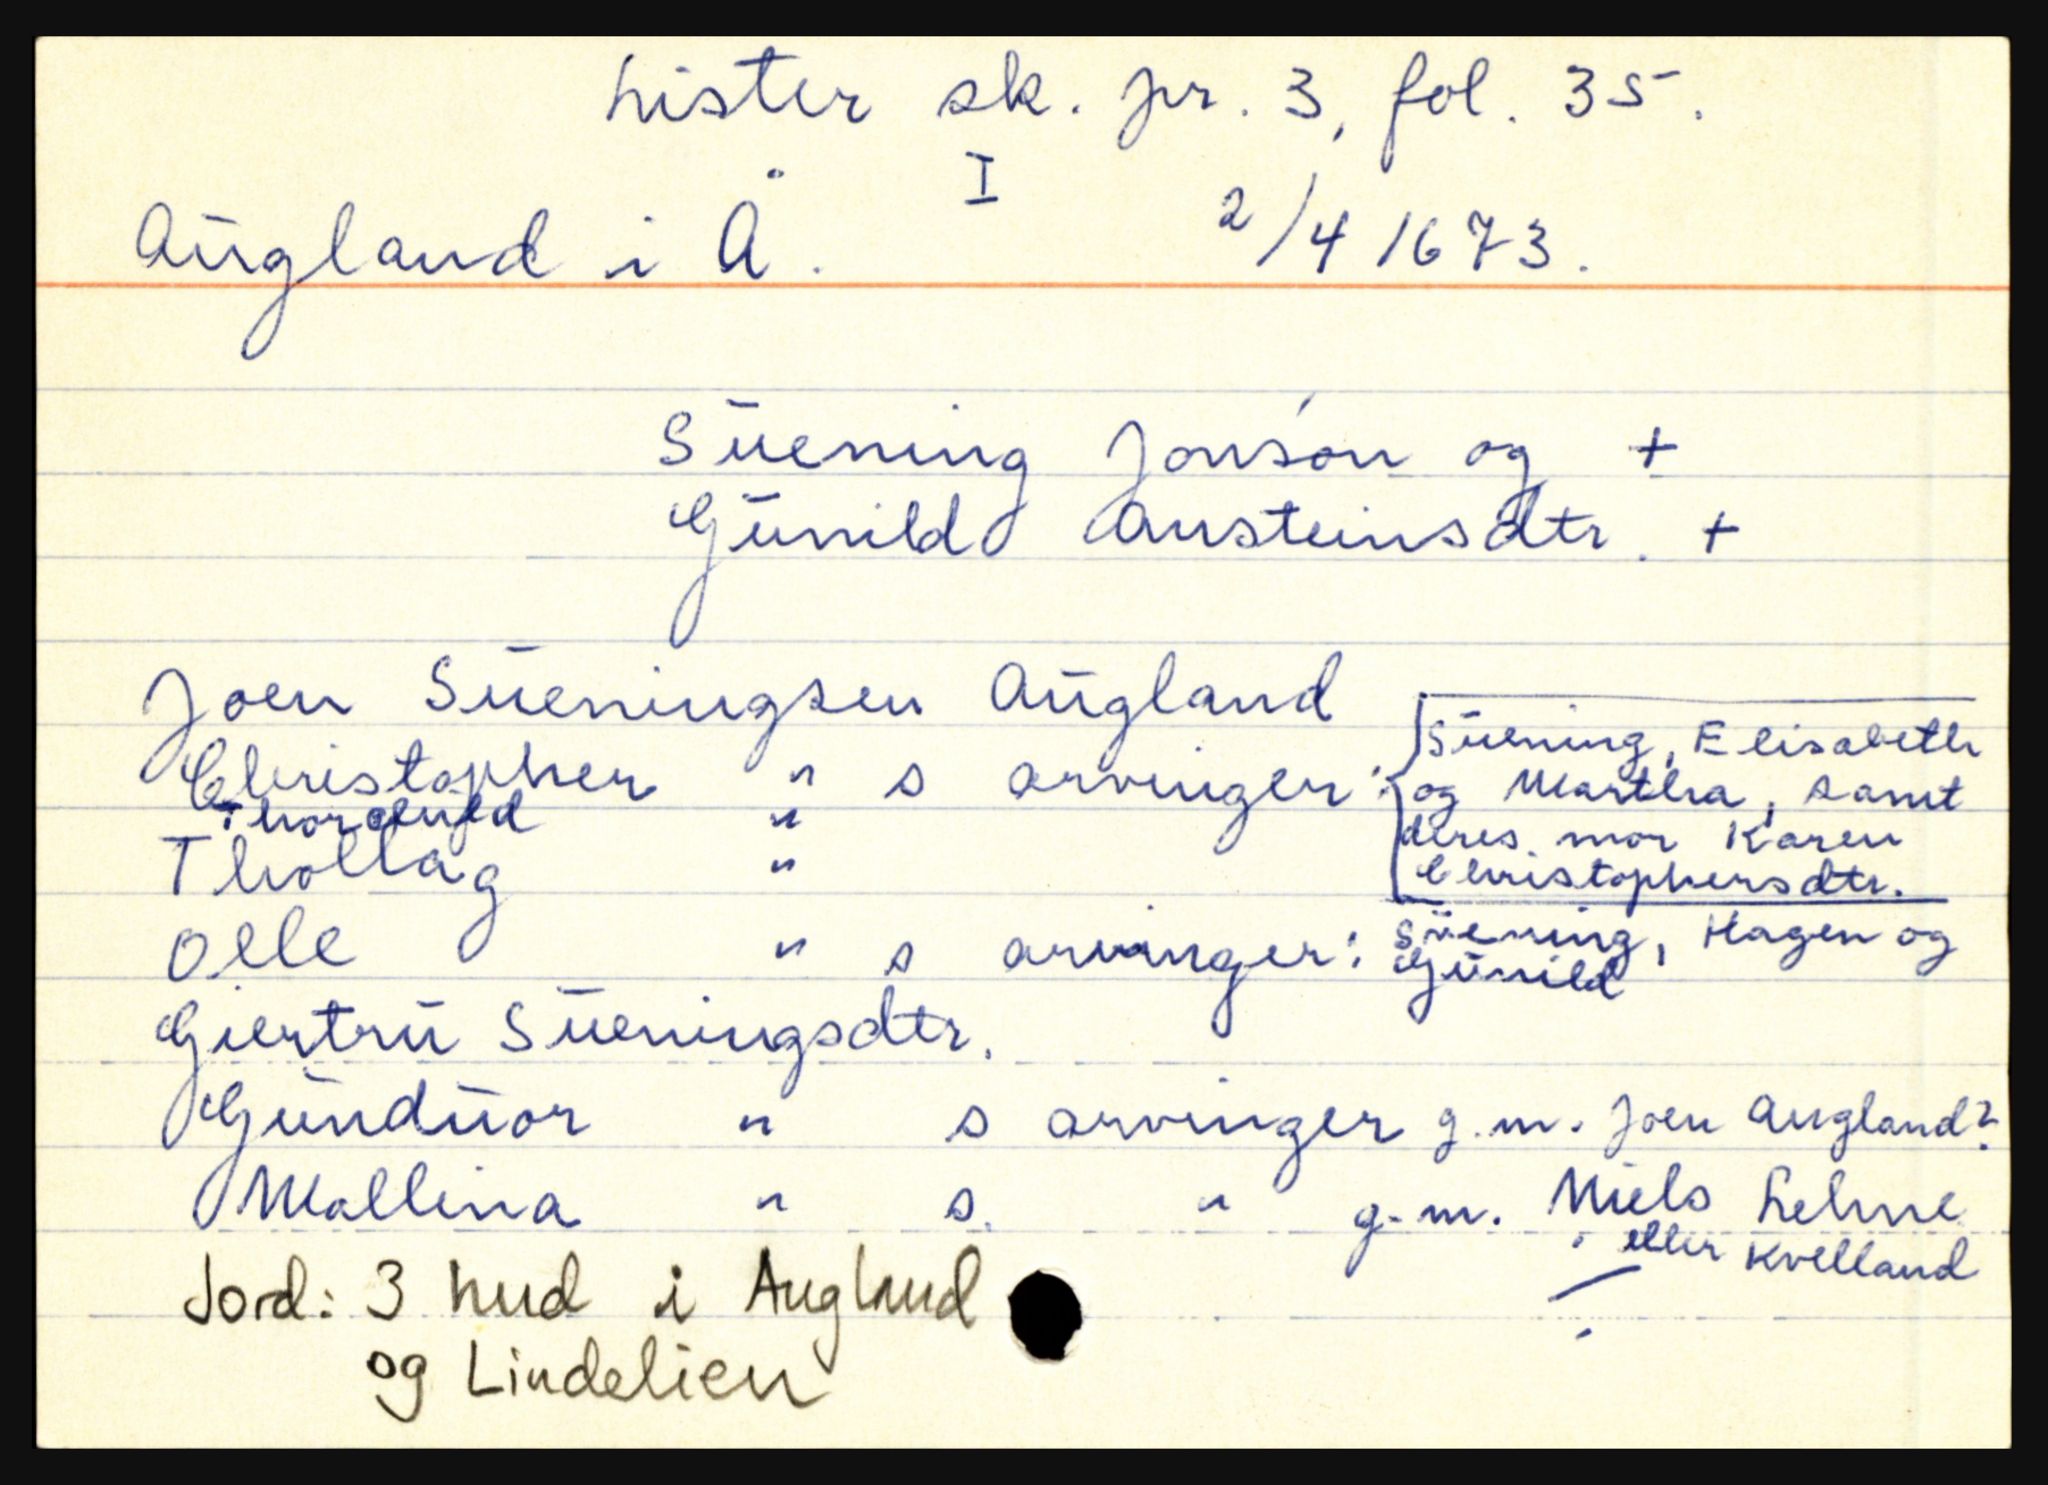 Lister sk. pr. 3, fol. 35.
I
Aūgland i Å. 2/4 1673.
Sūening Jonsøn og +
Gūnild Austeinsdtr. +
Joen Sūeningsen Aūgland
Christopher " s arvinger: Sūening, Elisabeth
og Martha, samt
deres mor Karen
Christophersdtr.
"
Thollag "
Olle " s arvinger: Sūening, Hagen og
Gūnild
Giertrū Sūeningsdtr.
Gūndūor " s arvinger g.m. Joen Augland?
Mallina " s. " g.m. Niels Lehne
eller Kvelland
Jord: 3 hud i Augland
og Lindelien